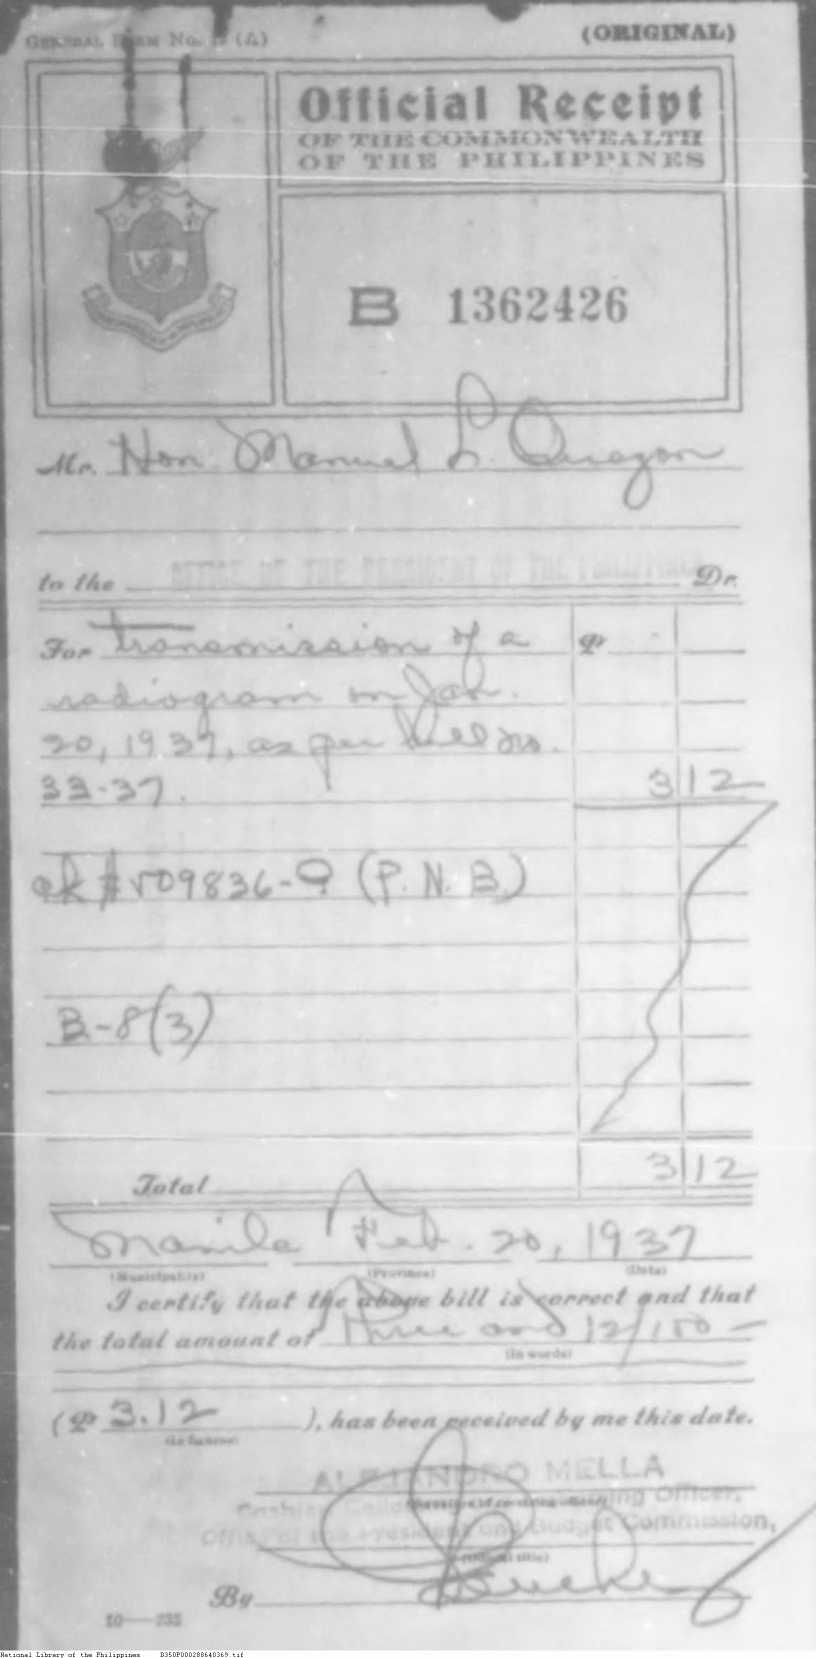 GENERAL FORM No. (A)
(ORIGINAL)
Official Receipt
OF THE COMMONWEALTH
OF THE PHILIPPINES
B 1362426
Mr. Hon. Manuel L. Quezon
to the OFFICE OF THE PRESIDENT OF THE PHILIPPINES Dr.
For transmission of a ₱
radiogram on Jan.
20, 1937, as per bill no.
33-37. 3 12
ck # 709836-Q (P. N. B.)
B-8(3)
Total 3 12
Manila Feb. 20, 1937
(Municipality) (Province) (Date)
I certify that the above bill is correct and that
the total amount of three and 12/100 —
(In words)
(₱ 3.12 ), has been received by me this date.
(In figures)
ALEJANDRO MELLA
Officer,
Office of the President and Budget Commission,
(Official title)
By
10—235
National Library of the Philippines B350P000288640369.tif